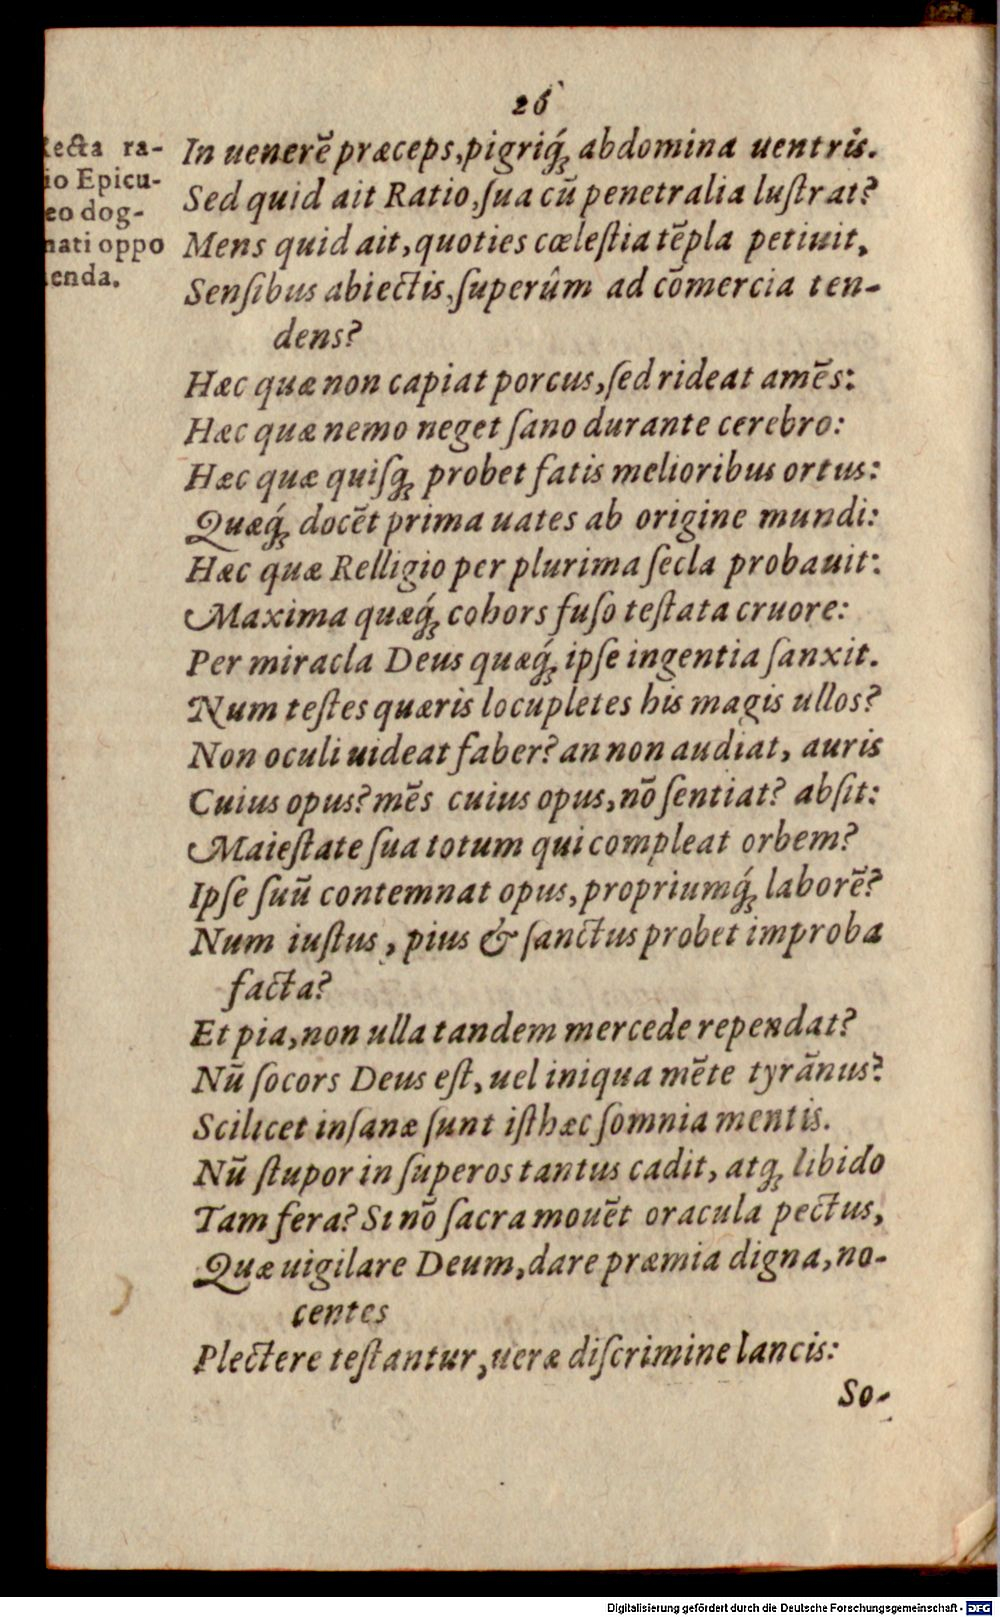 26
Recta ra-
io Epicu-
eo dog-
nati oppo
enda.
In uenerẽ præceps, pigriq́; abdomina uentris.
Sed quid ait Ratio, ſua cũ penetralia luſtrat?
Mens quid ait, quoties cœleſtia tẽpla petiuit,
Senſibus abiectis, ſuperûm ad cõmercia ten-
dens?
Hæc quæ non capiat porcus, ſed rideat amẽs:
Hæc quæ nemo neget ſano durante cerebro:
Hæc quæ quiſq; probet fatis melioribus ortus:
Quæq́; docẽt prima uates ab origine mundi:
Hæc quæ Relligio per plurima ſecla probauit:
Maxima quæq́; cohors fuſo teſtata cruore:
Per miracla Deus quæq́; ipſe ingentia ſanxit.
Num teſtes quæris locupletes his magis ullos?
Non oculi uideat faber? an non audiat, auris
Cuius opus? mẽs cuius opus, nõ ſentiat? abſit:
Maieſtate ſua totum qui compleat orbem?
Ipſe ſuũ contemnat opus, propriumq́; laborẽ?
Num iuſtus, pius & ſanctus probet improba
facta?
Et pia, non ulla tandem mercede rependat?
Nũ ſocors Deus eſt, uel iniqua mẽte tyrãnus?
Scilicet inſanæ ſunt iſthæc ſomnia mentis.
Nũ ſtupor in ſuperos tantus cadit, atq; libido
Tam fera? Si nõ ſacra mouẽt oracula pectus,
Quæ uigilare Deum, dare præmia digna, no-
centes
Plectere teſtantur, ueræ diſcrimine lancis:
So-
Digitalisierung gefördert durch die Deutsche Forschungsgemeinschaft - DFG